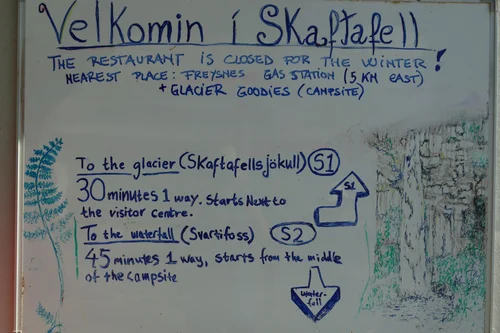 Velkomin í Skaftafell
THE RESTAURANT IS CLOSED FOR THE WINTER!
NEAREST PLACE: FREYSNES GAS STATION (5 KM EAST)
+ GLACIER GOODIES (CAMPSITE)
To the glacier (Skaftafellsjökull) S1
30 minutes 1 way. Starts Next to
the visitor centre.
S1
To the waterfall (Svartifoss) S2
45 minutes 1 way, starts from the middle
of the campsite
Water-
fall